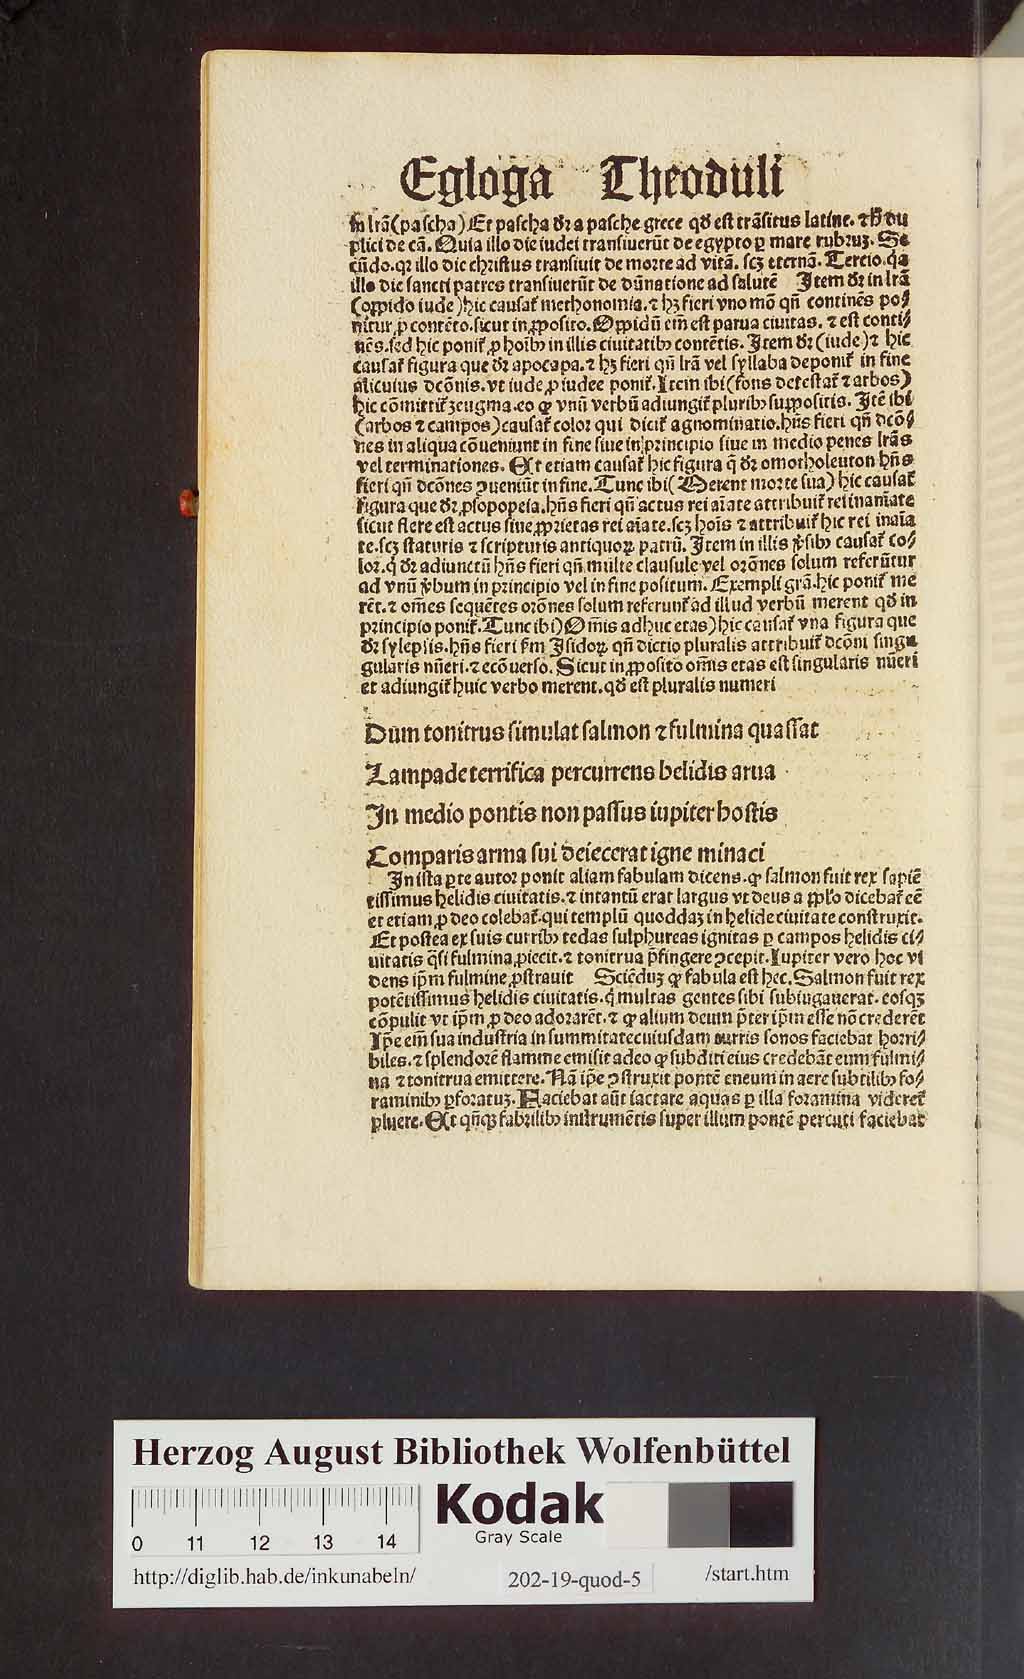 Egloga Theoduli
in lrã(pascha) Et pascha dr̃ a pasche grece qđ est trãsitus latine. ⁊ h̃ du
plici de cã. Quia illo die iudei transiuerũt de egypto ꝑ mare rubruꝫ. Se
cũdo. qꝛ illo die christus transiuit de morte ad vitã. scꝫ eternã. Tercio. qa
illo die sancti patres transiuerũt de dãnatione ad salutẽ Item dr̃ in lrã
(oppido iude) hic causat᷑ methonomia. ⁊ hꝫ fieri vno mõ qñ continẽs po⸗
nitur ꝓ contẽto. sicut in ꝓposito. Oppidũ em̃ est parua ciuitas. ⁊ est conti⸗
nẽs. sed hic ponit᷑ ꝓ hoĩbꝫ in illis ciuitatibꝫ contẽtis. Item dr̃ (iude) ⁊ hic
causat᷑ figura que dr̃ apocapa. ⁊ hꝫ fieri qñ lrã vel syllaba deponit᷑ in fine
alicuius dcõnis. vt iude ꝓ iudee ponit᷑. Item ibi (fons detestat᷑ ⁊ arbos)
hic cõmittit᷑ zeugma. eo ꝙ vnũ verbũ adiungit᷑ pluribꝫ suppositis. Itẽ ibi
(arbos ⁊ campos) causat᷑ color qui dicit᷑ agnominatio. hñs fieri qñ dcõ⸗
nes in aliqua cõueniunt in fine siue in principio siue in medio penes lrãs
vel terminationes. Et etiam causat᷑ hic figura q̃ dr̃ omotholeuton hñs
fieri qñ dcõnes ꝯueniũt in fine. Tunc ibi (Merent morte sua) hic causat᷑
figura que dr̃ ꝓsopopeia. hñs fieri qñ actus rei aĩate attribuit᷑ rei inanĩate
sicut flere est actus siue ꝓprietas rei aĩate. scꝫ hoĩs ⁊ attribuit᷑ hic rei inaĩa
te. scꝫ staturis ⁊ scripturis antiquoꝝ patrũ. Item in illis v̾sibꝫ causat᷑ co⸗
lor. q̃ dr̃ adiunctũ hñs fieri qñ multe clausule vel orõnes solum referũtur
ad vnũ v̾bum in principio vel in fine positum. Exempli grã. hic ponit᷑ me
rẽt. ⁊ om̃es sequẽtes orõnes solum referunt᷑ ad illud verbũ merent qđ in
principio ponit᷑. Tunc ibi (Om̃is adhuc etas) hic causat᷑ vna figura que
dr̃ sylepsis. hñs fieri ẜm Isidoꝝ qñ dictio pluralis attribuit᷑ dcõni singu
gularis nũeri. ⁊ ecõuerso. Sicut in ꝓposito om̃is etas est singularis nũeri
et adiungit᷑ huic verbo merent. qđ est pluralis numeri
Dum tonitrus simulat salmon ⁊ fulmina quassat
Lampade terrifica percurrens helidis arua
In medio pontis non passus iupiter hostis
Comparis arma sui deiecerat igne minaci
In ista ꝑte autor ponit aliam fabulam dicens. ꝙ salmon fuit rex sapiẽ
tissimus helidis ciuitatis. ⁊ intantũ erat largus vt deus a pplo dicebat᷑ eẽ
et etiam ꝓ deo colebat᷑. qui templũ quoddaꝫ in helide ciuitate construxit.
Et postea ex suis curribꝫ tedas sulphureas ignitas ꝑ campos helidis ci⸗
uitatis q̃si fulmina ꝓiecit. ⁊ tonitrua p̃fingere ꝯcepit. Iupiter vero hoc vi
dens ip̃m fulmine ꝓstrauit Sciẽduꝫ ꝙ fabula est hec. Salmon fuit rex
potẽtissimus helidis ciuitatis. q̃ multas gentes sibi subiugauerat. eosqꝫ
cõpulit vt ip̃m ꝓ deo adorarẽt. ⁊ ꝙ alium deum p̃ter ip̃m esse nõ crederẽt
Ip̃e em̃ sua industria in summitate cuiusdam turris sonos faciebat horri⸗
biles. ⁊ splendorẽ flamme emisit adeo ꝙ subditi eius credebãt eum fulmi⸗
na ⁊ tonitrua emittere. Nã ip̃e ꝯstruxit pontẽ eneum in aere subtilibꝫ fo⸗
raminibꝫ ꝑforatuꝫ. Faciebat aũt iactare aquas ꝑ illa foramina videret᷑
pluere. Et qñqꝫ fabrilibꝫ instrumẽtis super illum pontẽ percuti faciebat
Herzog August Bibliothek Wolfenbüttel
0 11 12 13 14
Kodak
Gray Scale
http://diglib.hab.de/inkunabeln/ 202-19-quod-5 /start.htm